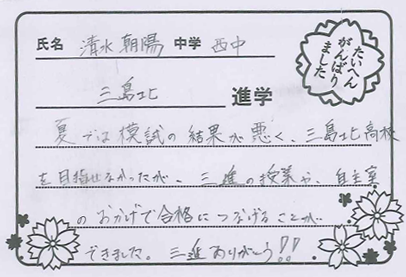 氏名 清水 朝陽 中学 西中
たいへん
がんばり
ました
三島北 進学
夏では模試の結果が悪く、三島北高校
を目指せなかったが、三進の授業や、自主室
のおかげで合格につなげることが
できました。三進ありがとう!!